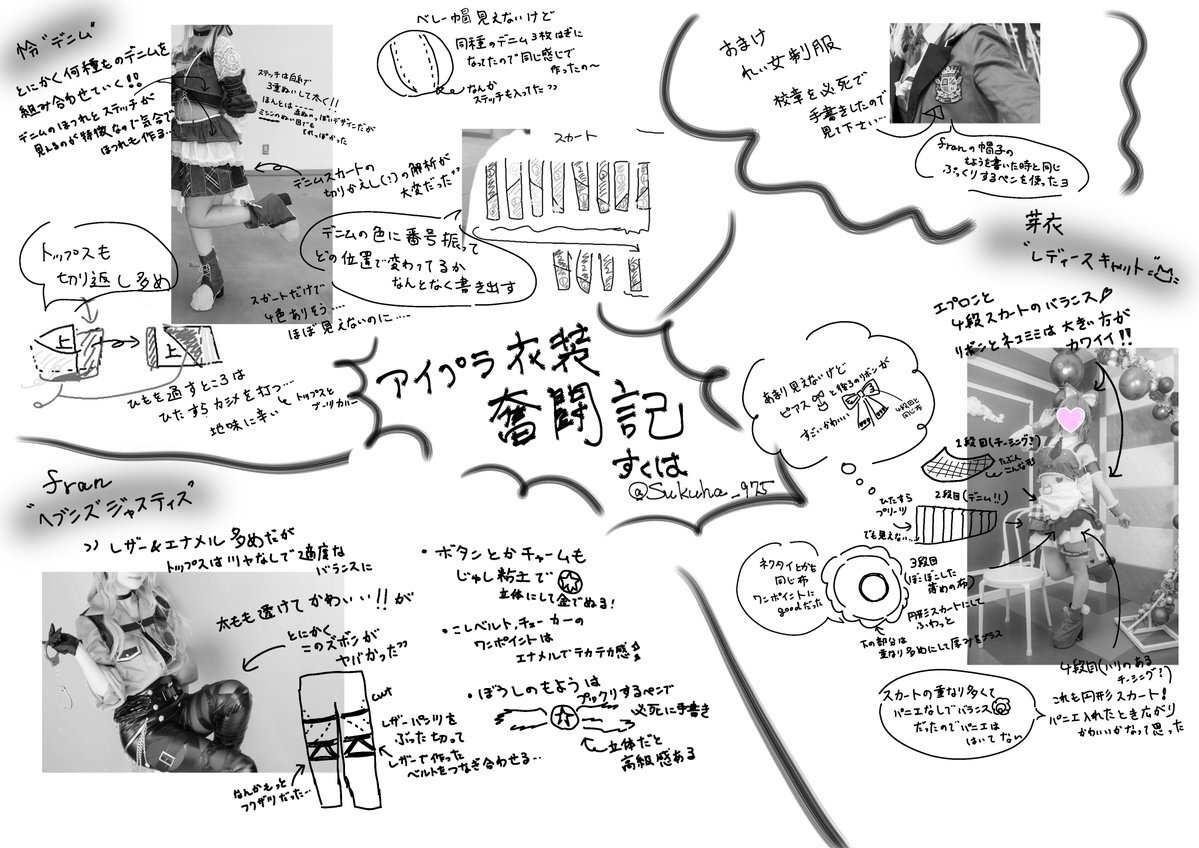 怜"デニム"
とにかく何種ものデニムを
組み合わせていく!!
デニムのほつれとステッチが
見えるのが特徴なので気合で
ほつれも作る…
ステッチは白糸で
3重ぬいして太く!!
ほんとは…
ミシンのぬい目でも
それっぽかった
ベレー帽見えないけど
同種のデニム3枚はぎに
なってたので同じ感じで
作ったの〜
なんか
ステッチも入ってた
デニムスカートの
切りかえし(?)の解析が
大変だった
スカート
デニムの色に番号振って
どの位置で変わってるか
なんとなく書き出す
スカートだけで
4色ありそう……
ほぼ見えないのに……
トップスも
切り返し多め
上
上
ひもを通すところは
ひたすらカシメを打つ…
地味に辛い
トップスと
ブーツカバー
おまけ
れい女制服
校章を必死で
手書きしたので
見て下さい…
franの帽子の
もようを書いた時と同じ
ぷっくりするペンを使ったヨ
アイプラ衣装
奮闘記
すくは
@Sukuha_975
芽衣
"レディースキャット"
エプロンと
4段スカートのバランス♡
リボンとネコミミは大きい方が
カワイイ!!
あまり見えないけど
ピアスと椅子のリボンが
すごいかわいい
4段目と
同じ布
1段目(チーシング?)
たぶん
こんな形
2段目(デニム!!)
ひたすら
プリーツ
でも見えない…
3段目
(ぼこぼこした
薄めの布)
円形スカートにして
ふわっと
ネクタイとかも
同じ布
ワンポイントに
goodだった
下の部分は
重なり多めにして厚みをプラス
4段目(ハリのある
チーシング?)
これも円形スカート!
パニエ入れたとき広がり
かわいいかなって思った
スカートの重なり多くて
パニエなしでバランス
だったのでパニエは
はいてない
fran
"ヘブンズジャスティス"
レザー&エナメル多めだが
トップスはツヤなしで適度な
バランスに
太もも透けてかわいい!!が
とにかく
このズボンが
ヤバかった
cut
レザーパンツを
ぶった切って
レザーで作った
ベルトをつなぎ合わせる…
なんかもっと
フクザツだった…
・ボタンとかチャームも
じゅし粘土で
立体にして金でぬる!
・こしベルト,チョーカーの
ワンポイントは
エナメルでテカテカ感
・ぼうしのもようは
プックリするペンで
必死に手書き
立体だと
高級感ある